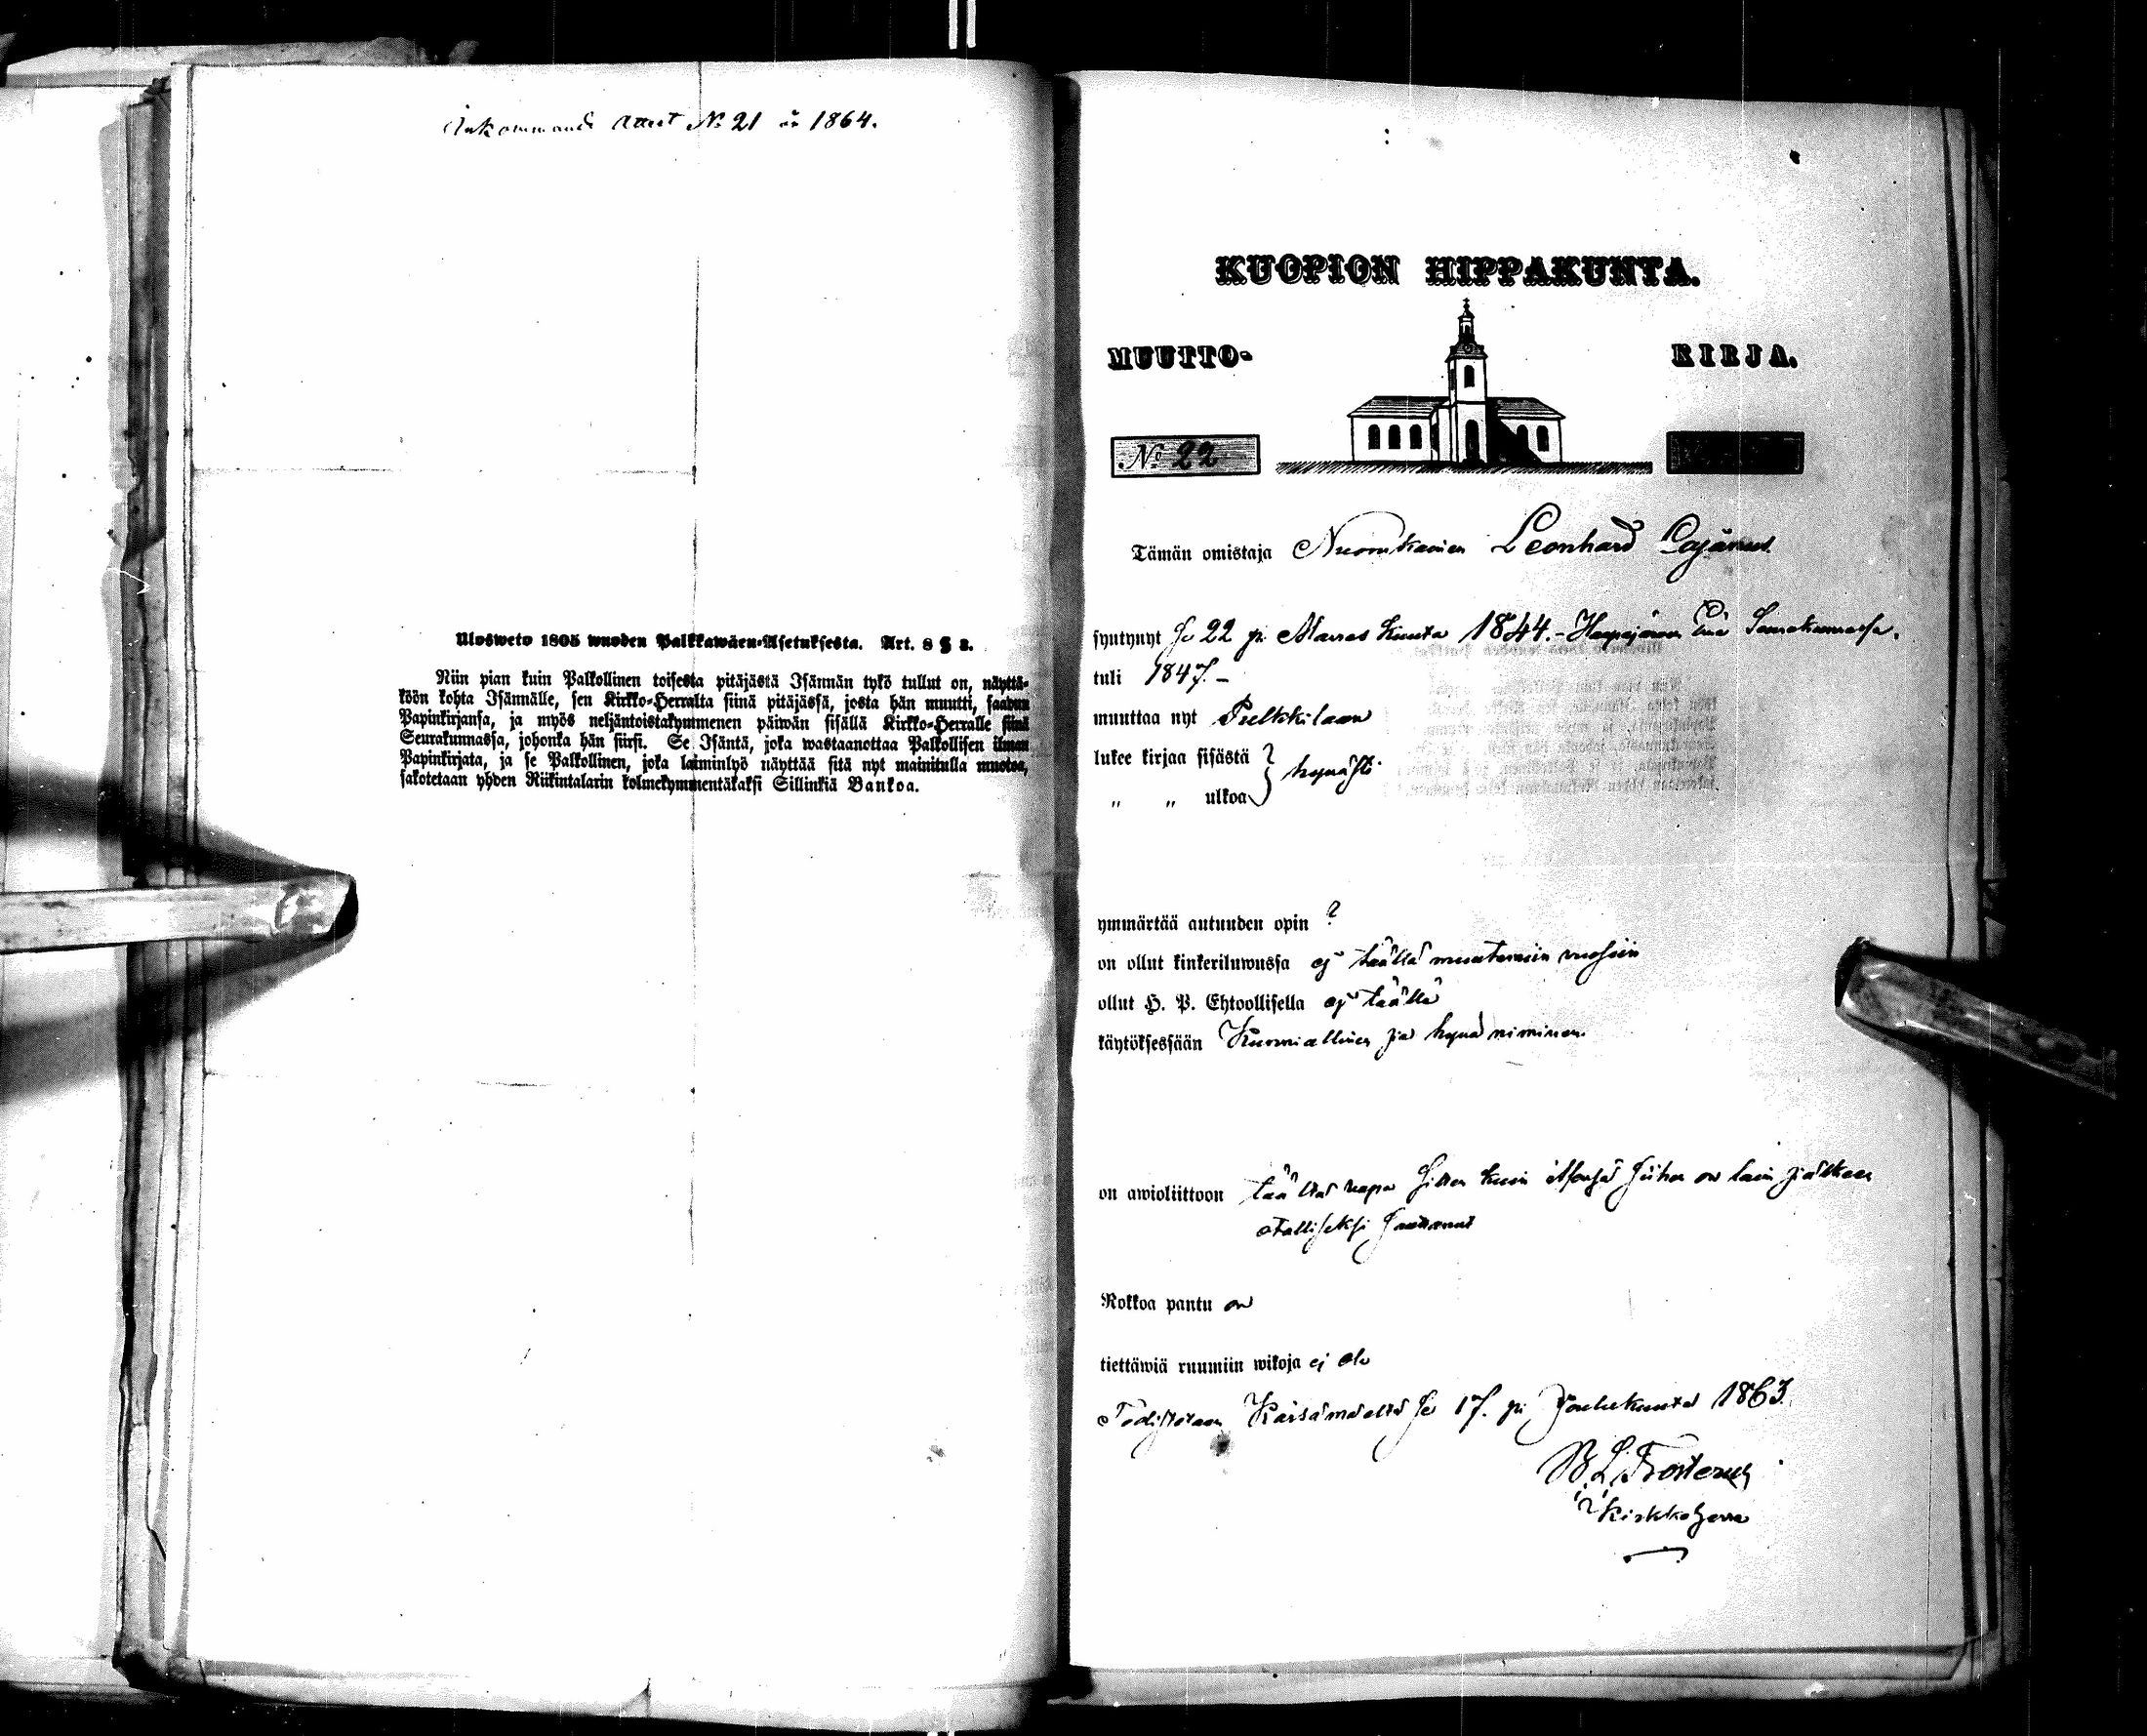 Inkommande Attest No 21 år 1864.
Ulosweto 1805 wuoden Palkkawäen-Asetuksesta. Art. 8 § 3.
Niin pian kuin Palkollinen toisesta pitäjästä Isännän tykö tullut on, näyttä-
köön kohta Isännälle, sen Kirkko-Herralta siinä pitäjässä, josta hän muutti, saadun
Papinkirjansa, ja myös neljäntoistakymmenen päiwän sisällä Kirkko-Herralle siinä
Seurakunnassa, johonka hän siirsi. Se Isäntä, joka wastaanottaa Palkollisen ilman
Papinkirjata, ja se Palkollinen, joka laiminlyö näyttää sitä nyt mainitulla muotoa,
sakotetaan yhden Riikintalarin kolmekymmentäkaksi Sillinkiä Bankoa.
KUOPION HIPPAKUNTA.
MUUTTO- KIRJA.
No 22
Tämän omistaja Nuorukainen Leonhard Cajanus
syntynyt se 22 p: Marras kuuta 1844. - Haapajärven Seurakunnassa.
tuli 1847. -
muuttaa nyt Pulkkilaan
lukee kirjaa sisästä } hyvästi
" " ulkoa
ymmärtää autuuden opin ?
on ollut kinkeriluwussa ej täällä muutamiin vuosiin
ollut H. P. Ehtoollisella ej täällä
käytöksessään Kunniallinen ja hyvä niminen
on awioliittoon täällä vapa sitten kuin Isänsä on lain jälkeen
otolliseksi
Rokkoa pantu on
tiettäwiä ruumiin wikoja ej ole
Todistetaan Kärsämäeltä se 17. p: Joulukuuta 1863.
B L Frosterus
Kirkkoherra